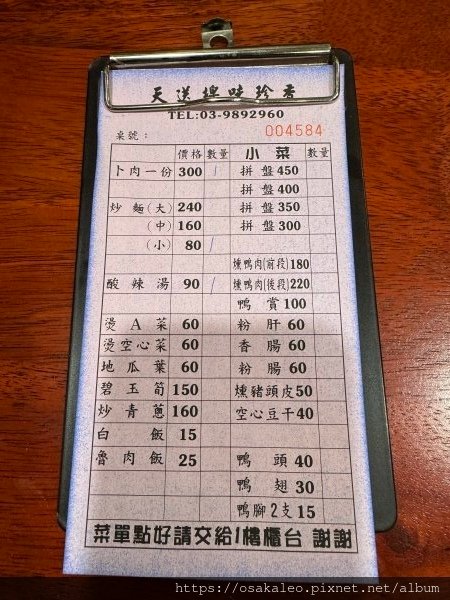 天送埤味珍香
TEL:03-9892960
桌號： 004584
價格 數量 小菜 數量
卜肉一份 300 1 拼盤 450
拼盤 400
炒麵(大) 240 拼盤 350
(中) 160 拼盤 300
(小) 80 1
燻鴨肉(前段) 180
酸辣湯 90 1 燻鴨肉(後段) 220
鴨賞 100
燙A菜 60 粉肝 60
燙空心菜 60 香腸 60
地瓜葉 60 粉腸 60
碧玉筍 150 燻豬頭皮 50
炒青蔥 160 空心豆干 40
白飯 15
魯肉飯 25 鴨頭 40
鴨翅 30
鴨腳2支 15
菜單點好請交給1樓櫃台 謝謝
https://osakaleo.pixnet.net/album